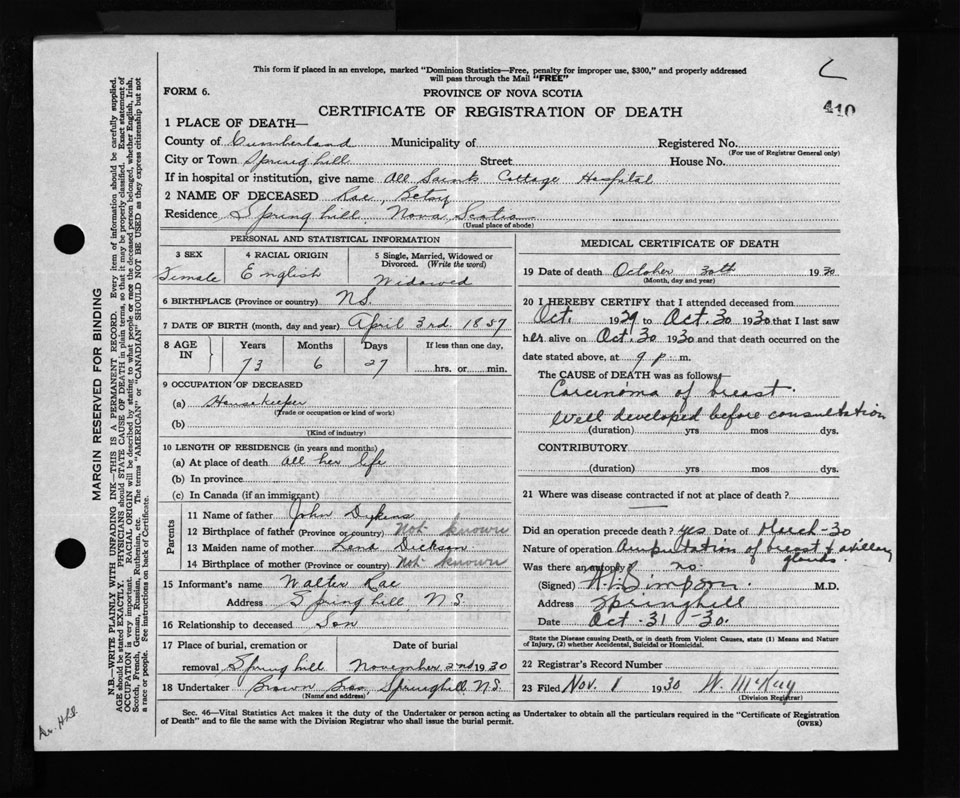 This form if placed in an envelope, marked "Dominion Statistics—Free, penalty for improper use, $300," and properly addressed
will pass through the Mail "FREE"
FORM 6. PROVINCE OF NOVA SCOTIA
CERTIFICATE OF REGISTRATION OF DEATH
410
1 PLACE OF DEATH—
County of Cumberland Municipality of Registered No.
(For use of Registrar General only)
City or Town Springhill Street House No.
If in hospital or institution, give name All Saints Cottage Hospital
2 NAME OF DECEASED Rae, Betsy
Residence Springhill, Nova Scotia
(Usual place of abode)
PERSONAL AND STATISTICAL INFORMATION
3 SEX 4 RACIAL ORIGIN 5 Single, Married, Widowed or Divorced. (Write the word)
Female English Widowed
6 BIRTHPLACE (Province or country) N.S.
7 DATE OF BIRTH (month, day and year) April 3rd. 1857
8 AGE IN Years Months Days If less than one day,
73 6 27 hrs. or min.
9 OCCUPATION OF DECEASED
(a) Housekeeper
(Trade or occupation or kind of work)
(b)
(Kind of industry)
10 LENGTH OF RESIDENCE (in years and months)
(a) At place of death all her life
(b) In province
(c) In Canada (if an immigrant)
Parents
11 Name of father John Dykens
12 Birthplace of father (Province or country) Not known
13 Maiden name of mother Lena Dickson
14 Birthplace of mother (Province or country) Not known
15 Informant's name Walter Rae
Address Springhill, N.S.
16 Relationship to deceased Son
17 Place of burial, cremation or Date of burial
removal Springhill November 2nd 1930
18 Undertaker Brown Bros, Springhill N.S.
(Name and address)
MEDICAL CERTIFICATE OF DEATH
19 Date of death October 30th 1930
(Month, day and year)
20 I HEREBY CERTIFY that I attended deceased from
Oct. 1929 to Oct. 30 1930 that I last saw
her alive on Oct. 30 1930 and that death occurred on the
date stated above, at 9 p. m.
The CAUSE of DEATH was as follows:
Carcinoma of breast.
Well developed before consultation
(duration) yrs mos dys.
CONTRIBUTORY
(duration) yrs mos dys.
21 Where was disease contracted if not at place of death?
Did an operation precede death? yes Date of March-30
Nature of operation Amputation of breast & axillary
glands.
Was there an autopsy? no.
(Signed) Simpson. M.D.
Address Springhill
Date Oct-31-30.
State the Disease causing Death, or in death from Violent Causes, state (1) Means and Nature
of Injury, (2) whether Accidental, Suicidal or Homicidal.
22 Registrar's Record Number
23 Filed Nov. 1 1930 W. McKay
(Division Registrar)
Sec. 46—Vital Statistics Act makes it the duty of the Undertaker or person acting as Undertaker to obtain all the particulars required in the "Certificate of Registration
of Death" and to file the same with the Division Registrar who shall issue the burial permit.
(OVER)
MARGIN RESERVED FOR BINDING
N.B.—WRITE PLAINLY WITH UNFADING INK—THIS IS A PERMANENT RECORD. Every item of information should be carefully supplied.
AGE should be stated EXACTLY. PHYSICIANS should STATE CAUSE OF DEATH in plain terms, so that it may be properly classified. Exact statement of
OCCUPATION is very important. RACIAL ORIGIN will be described by stating to what people or race the deceased person belonged, whether English, Irish,
Scotch, French, German, Russian, Ruthenian, etc. The terms "AMERICAN" or "CANADIAN" SHOULD NOT BE USED as they express citizenship but not
a race or people. See instructions on back of Certificate.